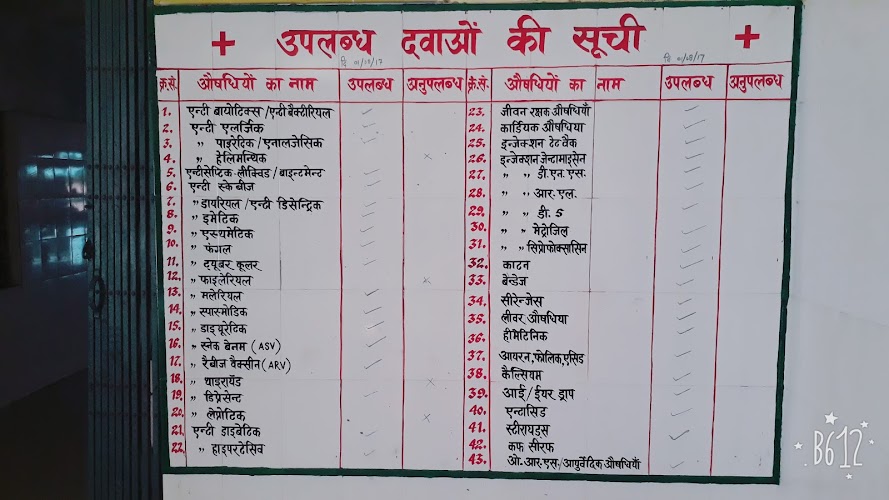 + उपलब्ध दवाओं की सूची +
दि 01/08/17 दि 01/08/17
क्र.सं. औषधियों का नाम उपलब्ध अनुपलब्ध
1. एन्टी बायोटिक्स/एन्टी बैक्टीरियल ✓
2. एन्टी एलर्जिक ✓
3. ,, पाइरेटिक/एनालजेसिक ✓
4. ,, हेलिमन्थिक ×
5. एन्टीसेप्टिक लीक्विड/बाइन्टमेन्ट ✓
6. एन्टी स्केबीज ✓
7. ,, डायरियल/एन्टी डिसेन्ट्रिक ✓
8. ,, इमेटिक ✓
9. ,, एस्थमेटिक ✓
10. ,, फंगल ✓
11. ,, ट्यूबर कूलर ✓
12. ,, फाइलेरियल ×
13. ,, मलेरियल ✓
14. ,, स्पास्मोडिक ✓
15. ,, डाइयूरेटिक ✓
16. ,, स्नेक बेनम (ASV) ✓
17. ,, रैबीज वैक्सीन (ARV) ✓
18. ,, थाइरायॅड ×
19. ,, डिप्रेसेन्ट ✓
20. ,, लेप्रोटिक ×
21. एन्टी डाइबेटिक ✓
22. ,, हाइपरटेंसिव ✓
क्र.सं. औषधियों का नाम उपलब्ध अनुपलब्ध
23. जीवन रक्षक औषधियाँ ✓
24. कार्डियक औषधिया ✓
25. इन्जेक्शन टेटवैक ✓
26. इन्जेक्शन जेन्टामाइसेन ✓
27. ,, ,, डी.एन.एस. ✓
28. ,, ,, आर.एल. ✓
29. ,, ,, डी. 5 ✓
30. ,, ,, मेट्रोजिल ✓
31. ,, ,, सिप्रोफोक्सासिन ✓
32. काटन ✓
33. बेन्डेज ✓
34. सीरेन्जेस ✓
35. लीवर औषधिया ✓
36. हीमैटिनिक ✓
37. आयरन,फोलिक,एसिड ✓
38. कैल्सियम ✓
39. आई/ईयर ड्राप ✓
40. एन्टासिड ✓
41. स्टीरायड्स ✓
42. कफ सीरफ ✓
43. ओ.आर.एस./आयुर्वेदिक औषधियाँ ✓
B612